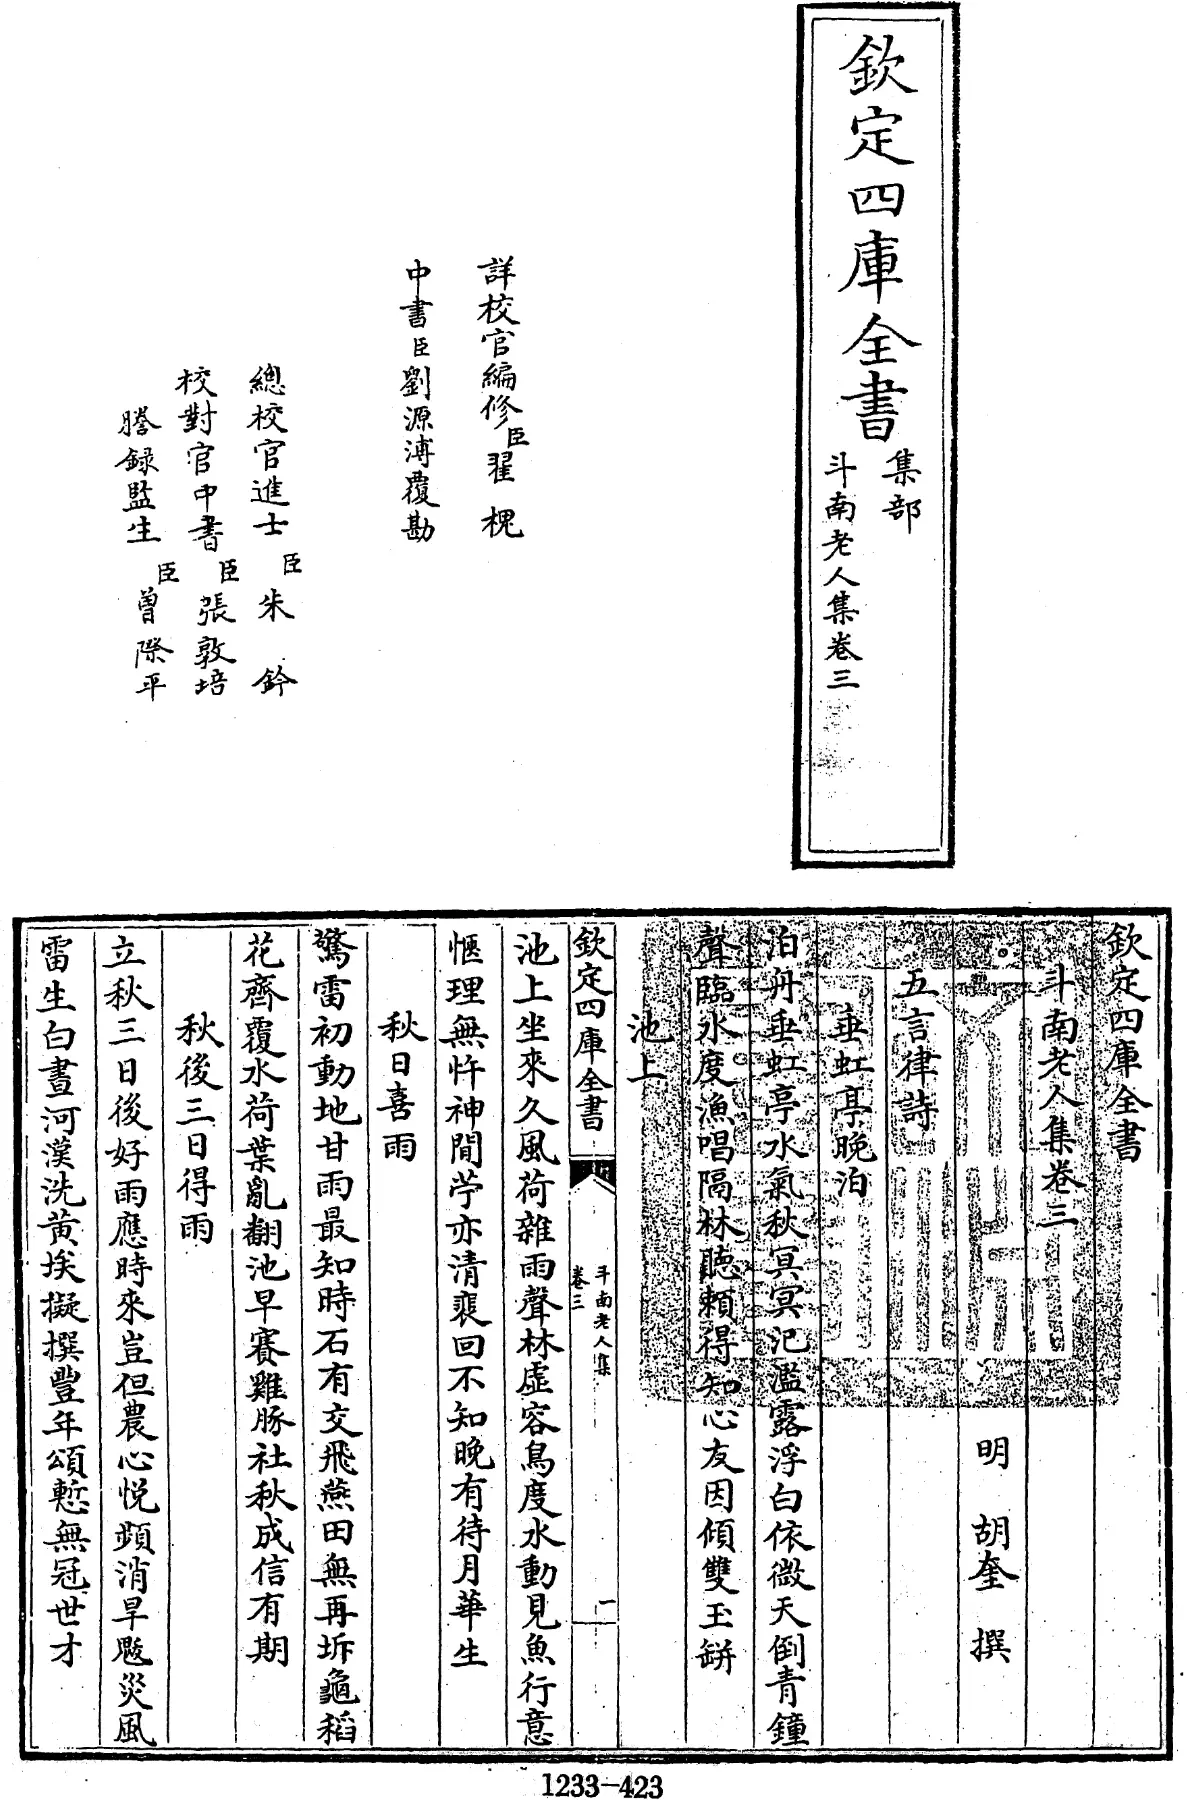 欽定四庫全書
集部
斗南老人集卷三
詳校官編修臣翟槐
中書臣劉源溥覆勘
總校官進士臣朱鈐
校對官中書臣張敦培
謄錄監生臣曾際平
欽定四庫全書
斗南老人集卷三
明 胡奎 撰
五言律詩
垂虹亭晚泊
泊舟垂虹亭水氣秋冥冥汜濫露浮白依微天倒青鐘
聲臨水度漁唱隔林聽賴得知心友因傾雙玉缾
池上
欽定四庫全書
斗南老人集
卷三
一
池上坐來久風荷雜雨聲林虛容鳥度水動見魚行意
愜理無忤神閒茡亦清裵回不知晚有待月華生
秋日喜雨
驚雷初動地甘雨最知時石有交飛燕田無再坼龜稻
花齊覆水荷葉亂翻池早賽雞豚社秋成信有期
秋後三日得雨
立秋三日後好雨應時來豈但農心悅頻消旱魃災風
雷生白晝河漢洗黃埃擬撰豐年頌慙無冠世才
1233-423